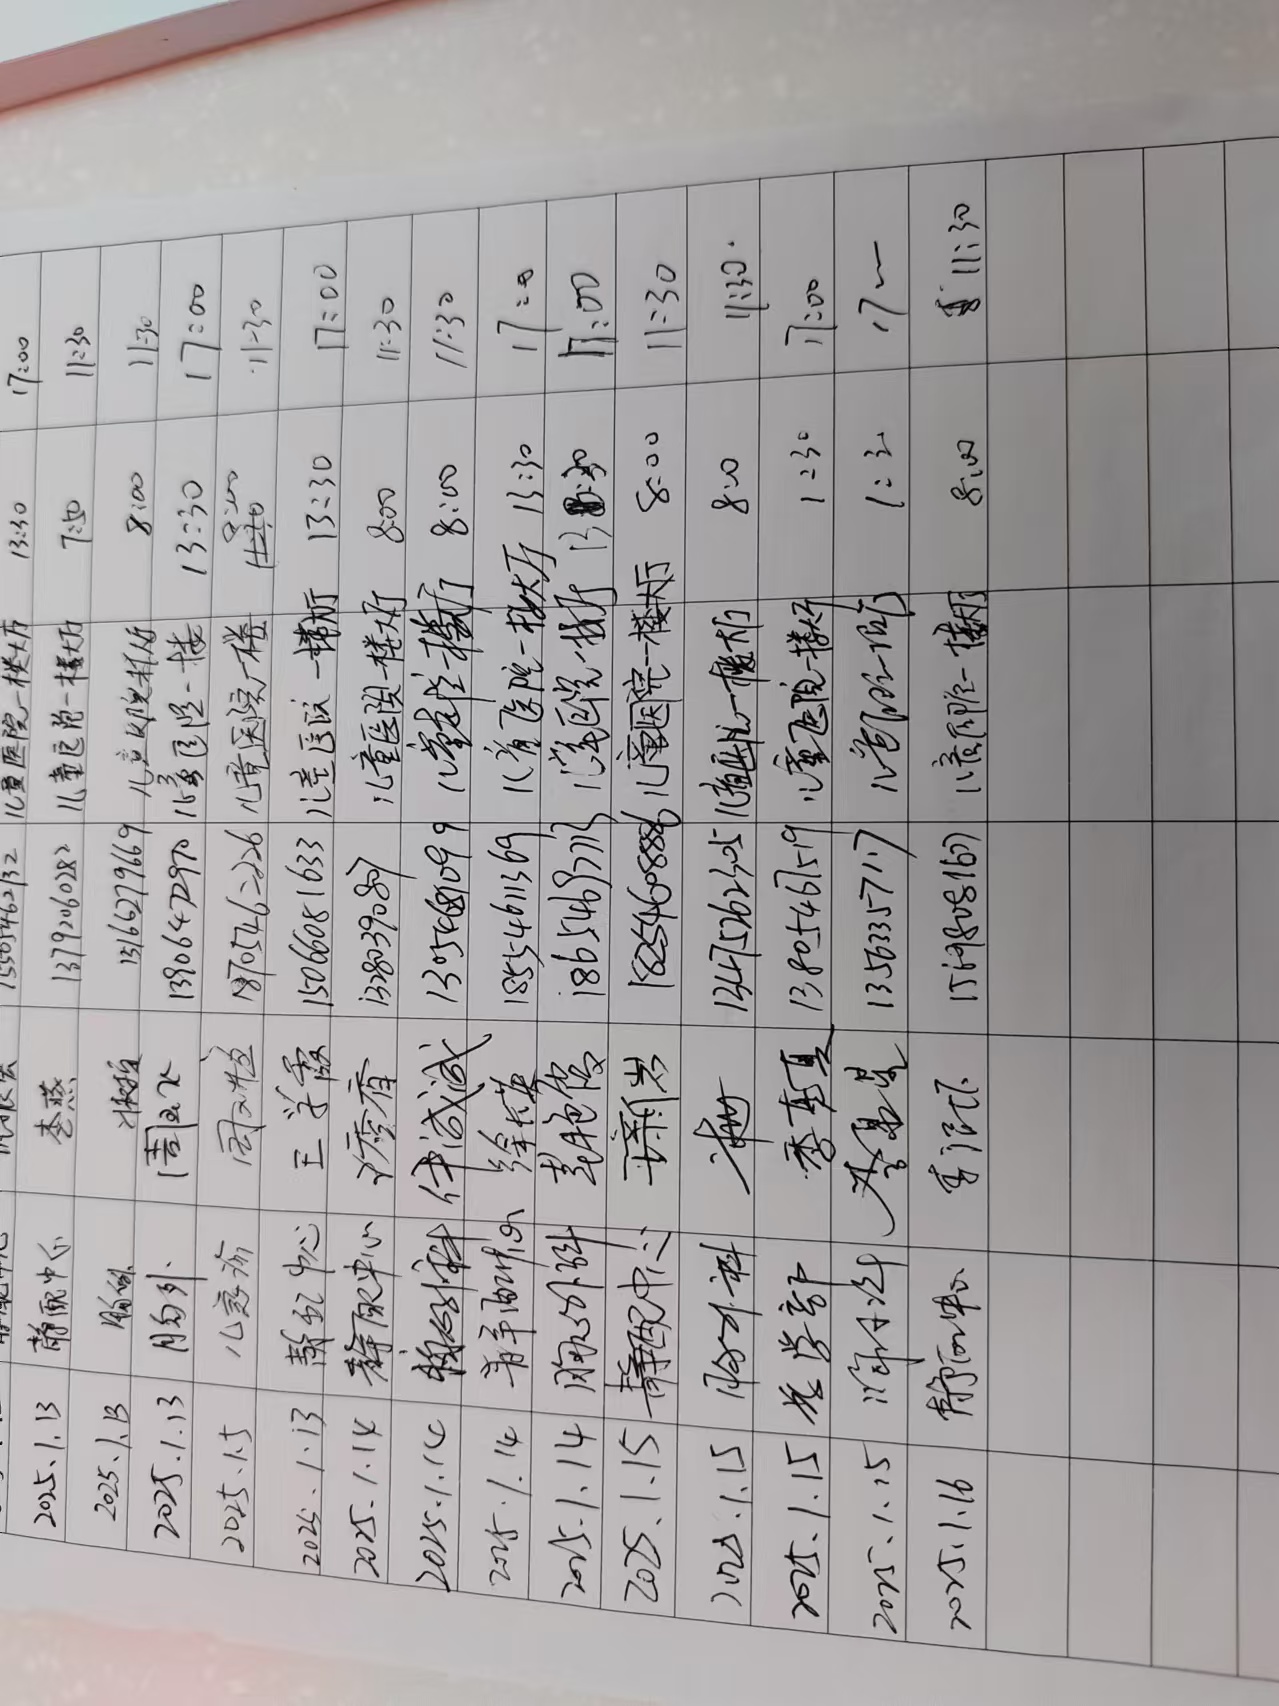 15505462132 儿童医院一楼大厅 13:30 17:00
2025.1.13 静配中心 李燕 13792060282 儿童医院一楼大厅 7:50 11:30
2025.1.13 胸外 13162779669 8:00 11:30
2025.1.13 胸外 13906472970 儿童医院一楼 13:30 17:00
2025.1.5 儿急诊 18705462226 儿童医院一楼 8:00 11:30
2025.1.13 静配中心 王学霞 15066081633 儿童医院一楼大厅 13:30 17:00
2025.1.14 静配中心 13280339080 儿童医院一楼大厅 8:00 11:30
2025.1.14 胸外科 13054681099 儿童医院一楼大厅 8:00 11:30
2025.1.14 静配中心 徐长英 18554611369 儿童医院一楼大厅 13:30 17:00
2025.1.14 胸外科 18654637713 儿童医院一楼大厅 13:30 17:00
2025.1.15 静配中心 18254608886 儿童医院一楼大厅 8:00 11:30
2025.1.15 胸外科 13475262305 儿童医院一楼大厅 8:00 11:30.
2025.1.15 13805467519 儿童医院一楼大厅 1:30 17:00
2025.1.15 13563357117 1:30 17
2025.1.16 静配中心 15698081671 儿童医院一楼大厅 8:00 11:30